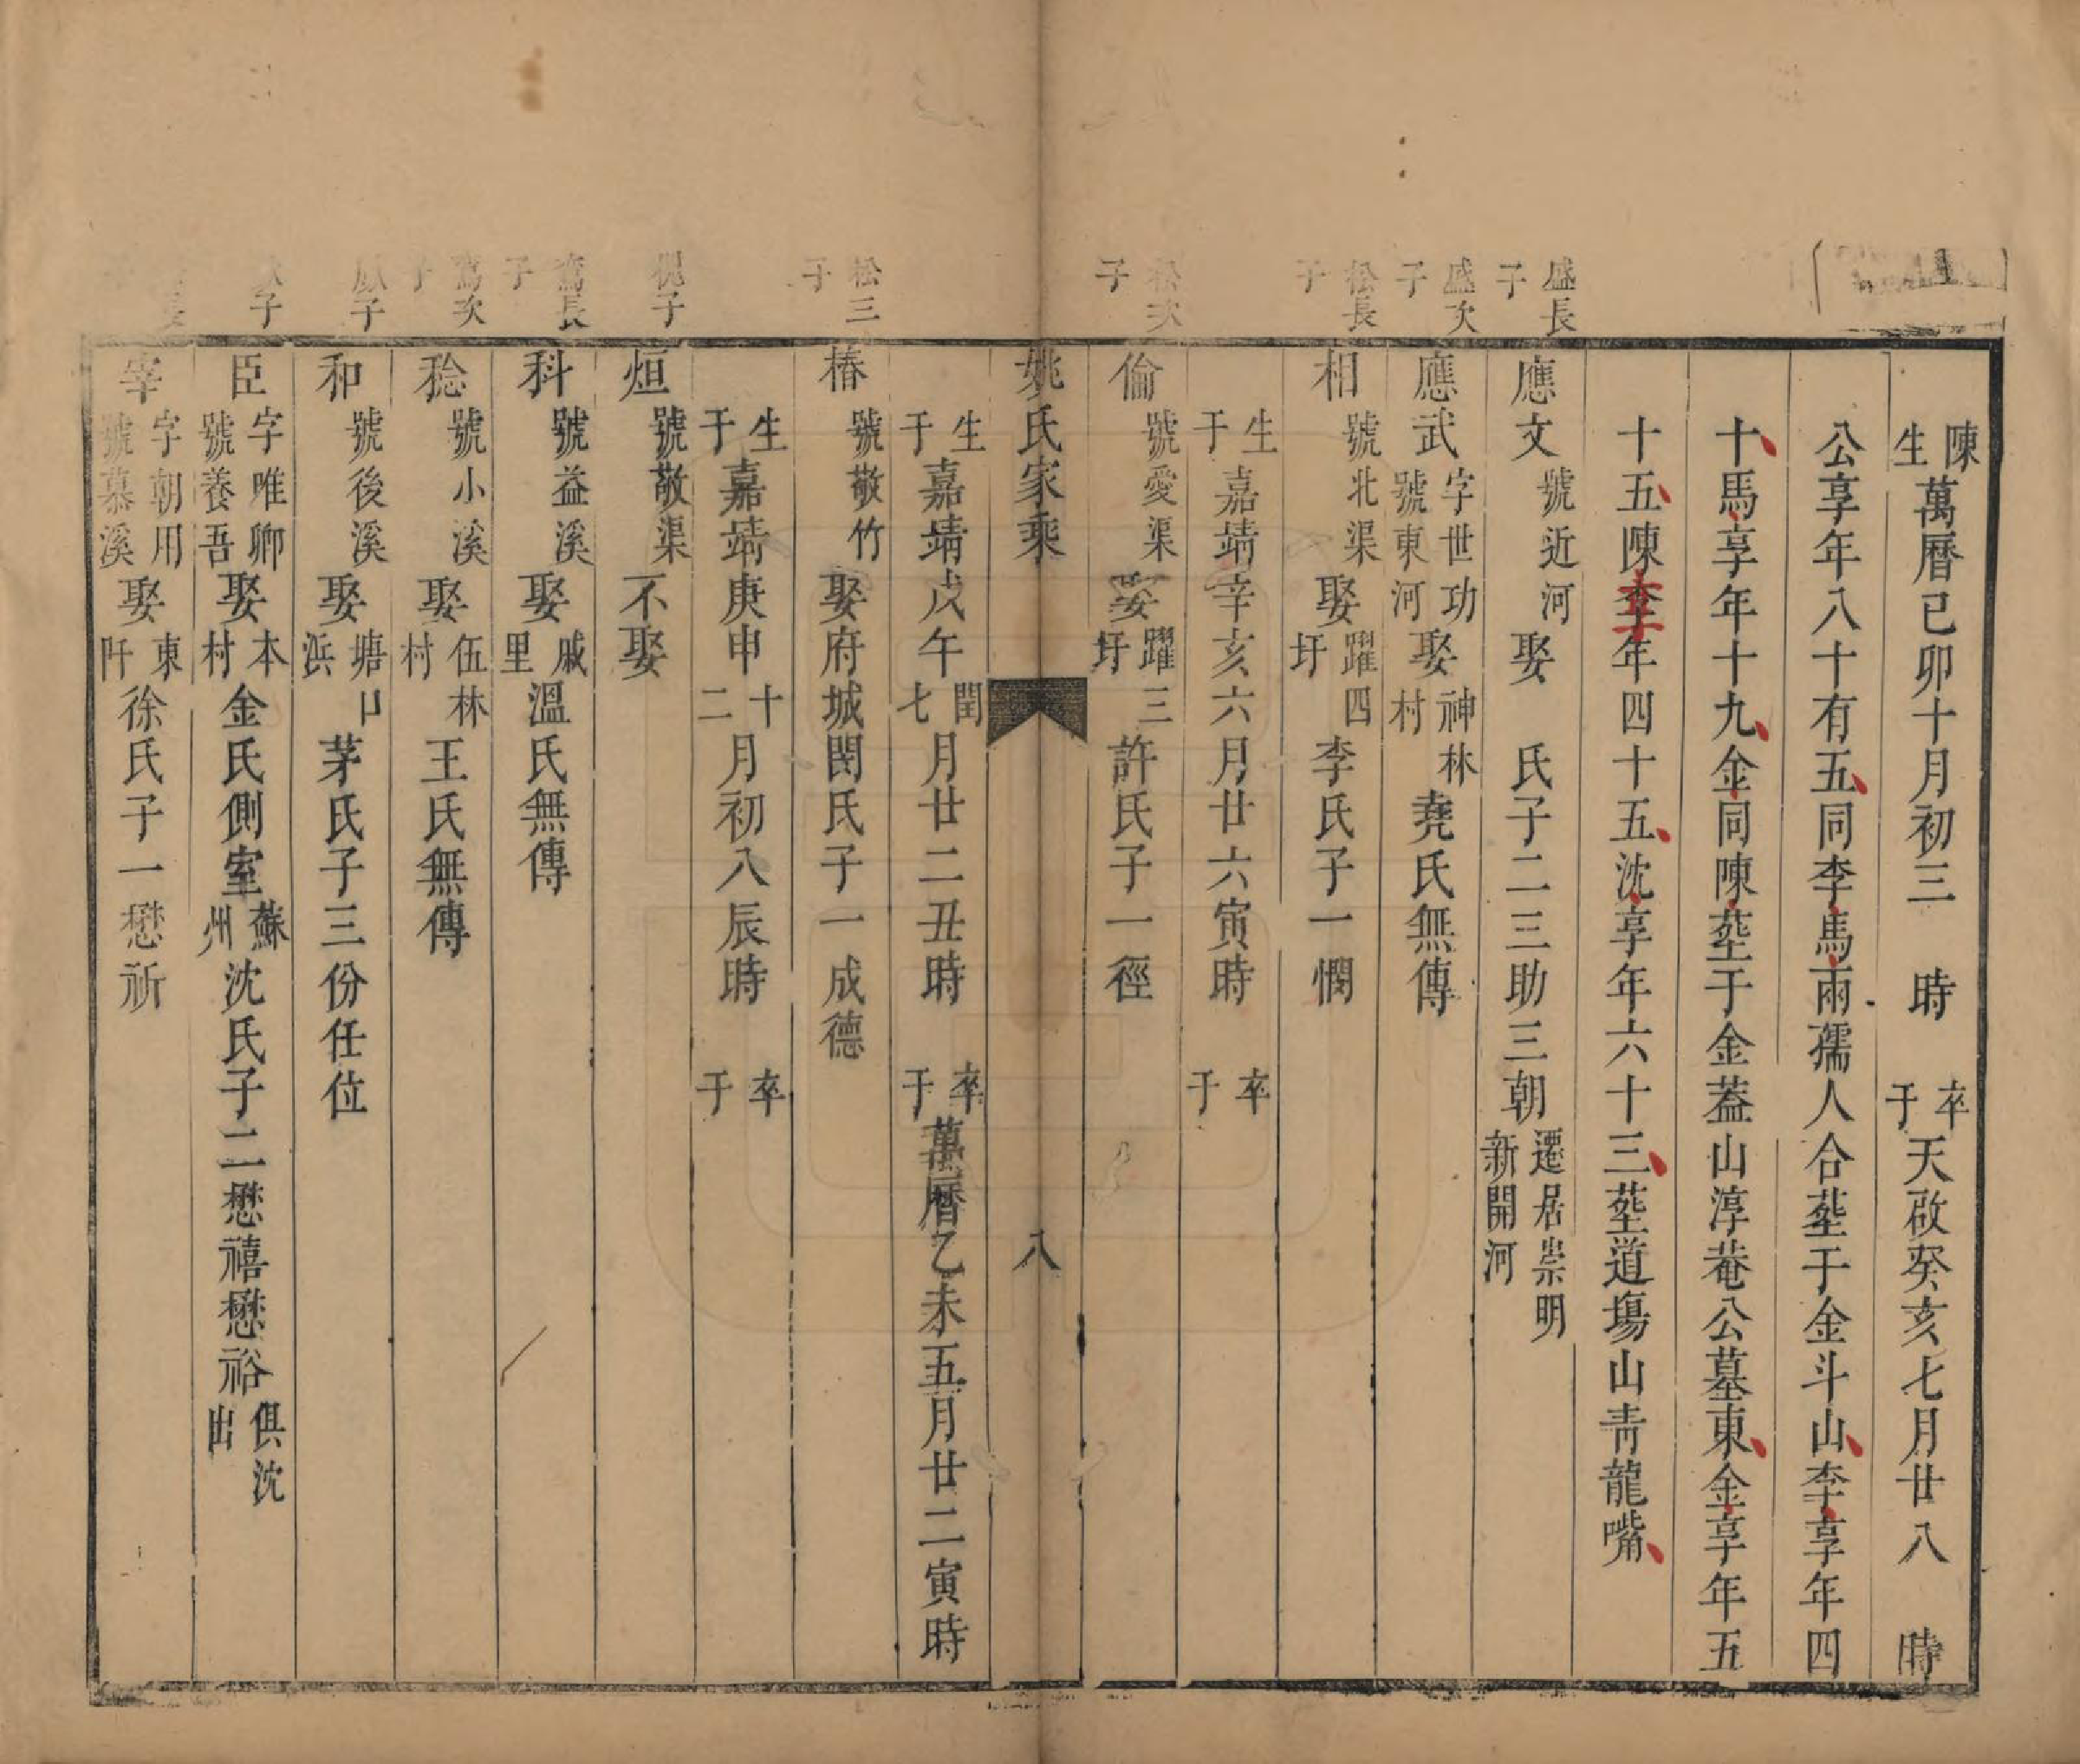 陳生萬曆己卯十月初三　時　卒于天啟癸亥七月廿八　時
公享年八十有五同李馬兩孺人合塟于金斗山李享年四
十馬享年十九金同陳塟于金蓋山淳菴公墓東金享年五
十五陳享年四十五沈享年六十三塟道塲山青龍嘴
盛長子
應文號近河娶　氏子二三助三朝遷居崇明新開河
盛次子
應武字世功號東河娶神林村堯氏無傳
松長子
相號北渠娶躍四圩李氏子一憪
生于嘉靖辛亥六月廿六寅時　卒于
松次子
倫號愛渠娶躍三圩許氏子一徑
姚氏家乘　八
生于嘉靖戊午閏七月廿二丑時　卒于萬曆乙未五月廿二寅時
松三子
椿號敬竹娶府城閔氏子一成德
生于嘉靖庚申十二月初八辰時　卒于
槐子
烜號敬渠不娶
鸞長子
科號益溪娶戚里溫氏無傳
鸞次子
稔號小溪娶伍林村王氏無傳
子
和號後溪娶塘口浜茅氏子三份任位
子
臣字唯卿號養吾娶本村金氏側室蘇州沈氏子二懋禧懋裕俱沈出
宰字朝用號慕溪娶東阡徐氏子一懋祈